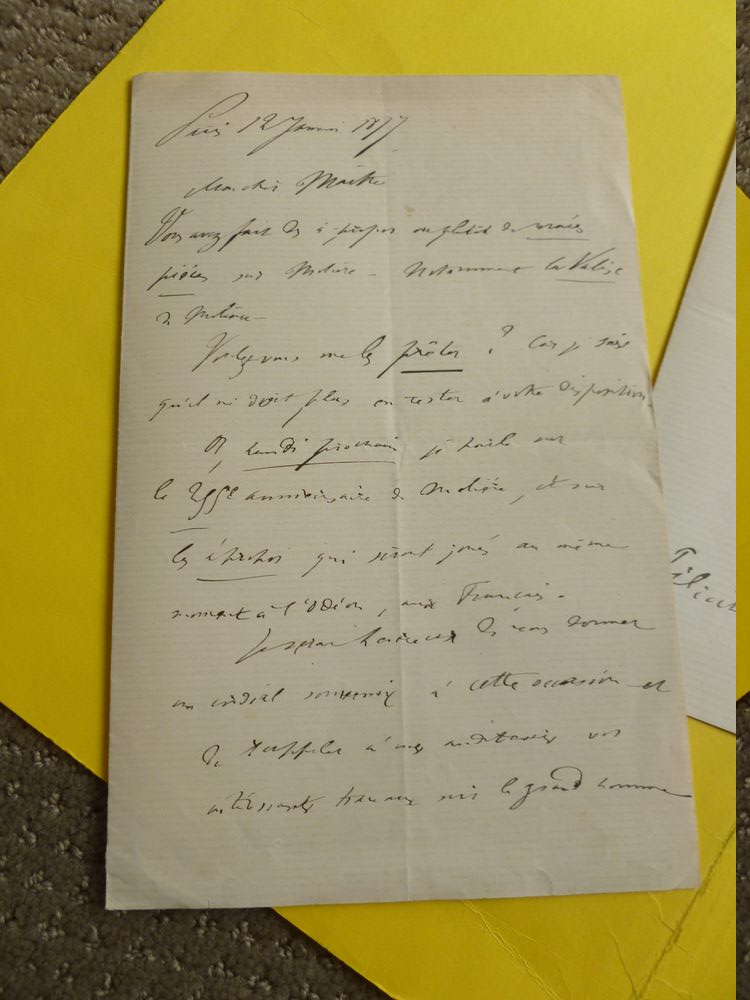 Paris 12 Janvier 1877
Mon cher Maître
Vous avez fait des à-propos ou plutôt de vraies
pièces sur Molière - Notamment la Valise
de Molière -
Voulez-vous me les prêter ? Car je sais
qu'il ne doit plus en rester à votre disposition.
Or, lundi prochain je parle sur
le 255e anniversaire de Molière, et sur
les à-propos qui seront joués au même
moment à l'Odéon, aux Français.
Je serai heureux de vous donner
un cordial souvenir à cette occasion et
de rappeler à mes auditeurs vos
intéressants travaux sur le grand homme